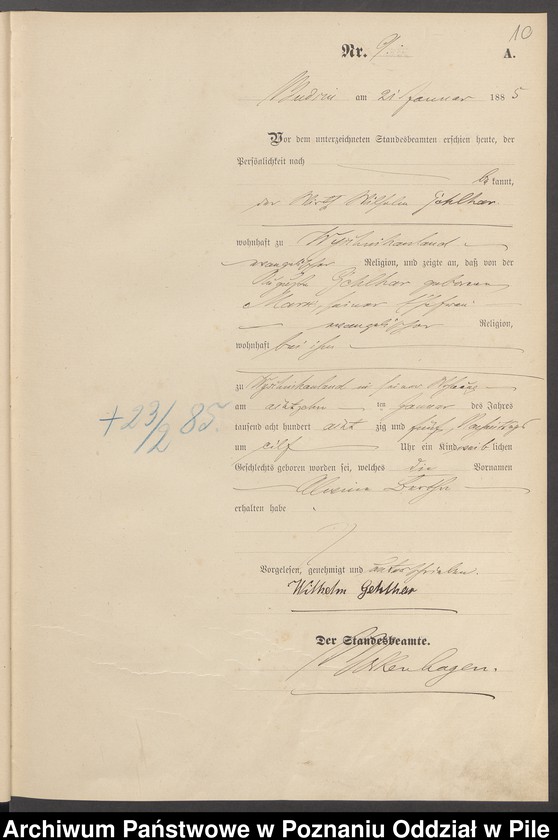 10
Nr. A.
am 21 Januar 1885
Vor dem unterzeichneten Standesbeamten erschien heute, der
Persönlichkeit nach
be kannt,
der Wirth Wilhelm Gehlhar
wohnhaft zu
evangelischer Religion, und zeigte an, daß von der
Auguste Gehlhar geborenen
seiner Ehefrau
evangelischer Religion,
wohnhaft bei ihm
zu in seiner Wohnung
am achtzehn ten Januar des Jahres
tausend acht hundert acht zig und fünf Vormittags
um eilf Uhr ein Kind weib lichen
Geschlechts geboren worden sei, welches die Vornamen
Alwine Bertha
erhalten habe
+ 23/2 85.
Vorgelesen, genehmigt und unterschrieben.
Wilhelm Gehlhar
Der Standesbeamte.
Archiwum Państwowe w Poznaniu Oddział w Pile